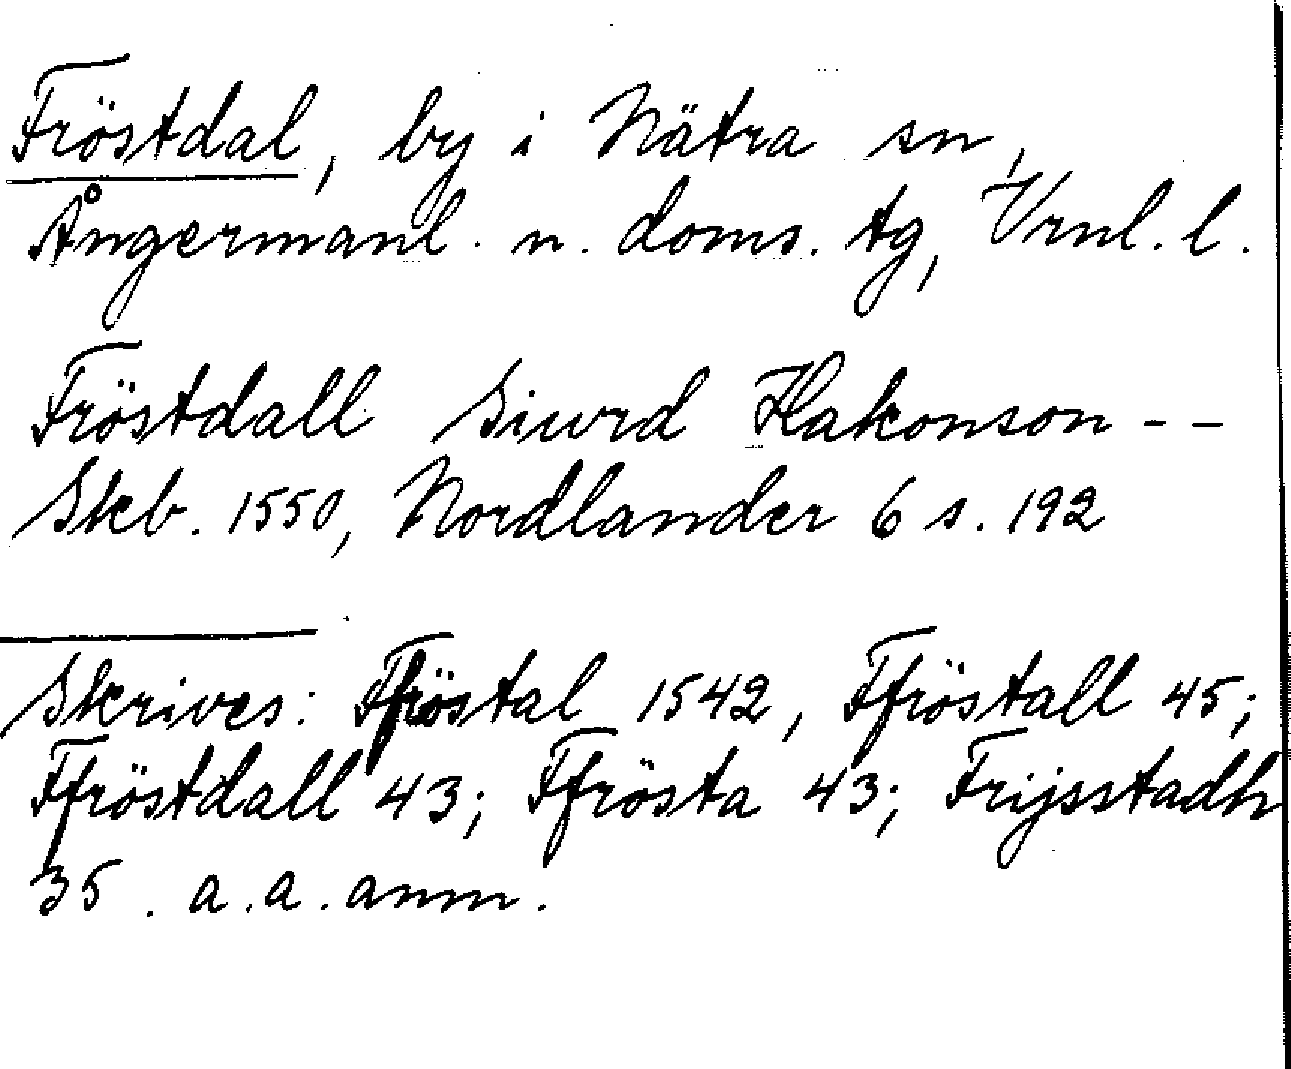 Fröstdal, by i Nätra sn,
Ångermanl. n. doms. tg, Vrnl. l.
Fröstdall Siurd Hakonson - -
Skb. 1550, Nordlander 6 s. 192
Skrives: Ffröstal 1542, Ffröstall 45;
Ffröstdall 43; Ffrösta 43; Frijsstadh
35. a. a. anm.